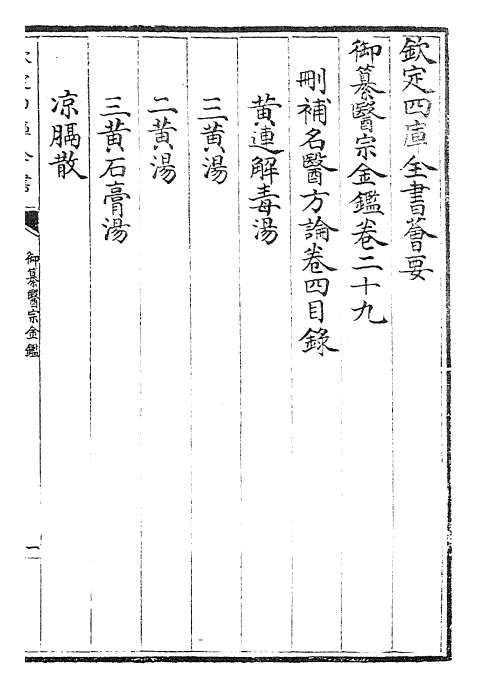 欽定四庫全書薈要
御纂醫宗金鑑卷二十九
刪補名醫方論卷四目錄
黄連解毒湯
三黄湯
二黄湯
三黄石膏湯
凉膈散
御纂醫宗金鑑
一